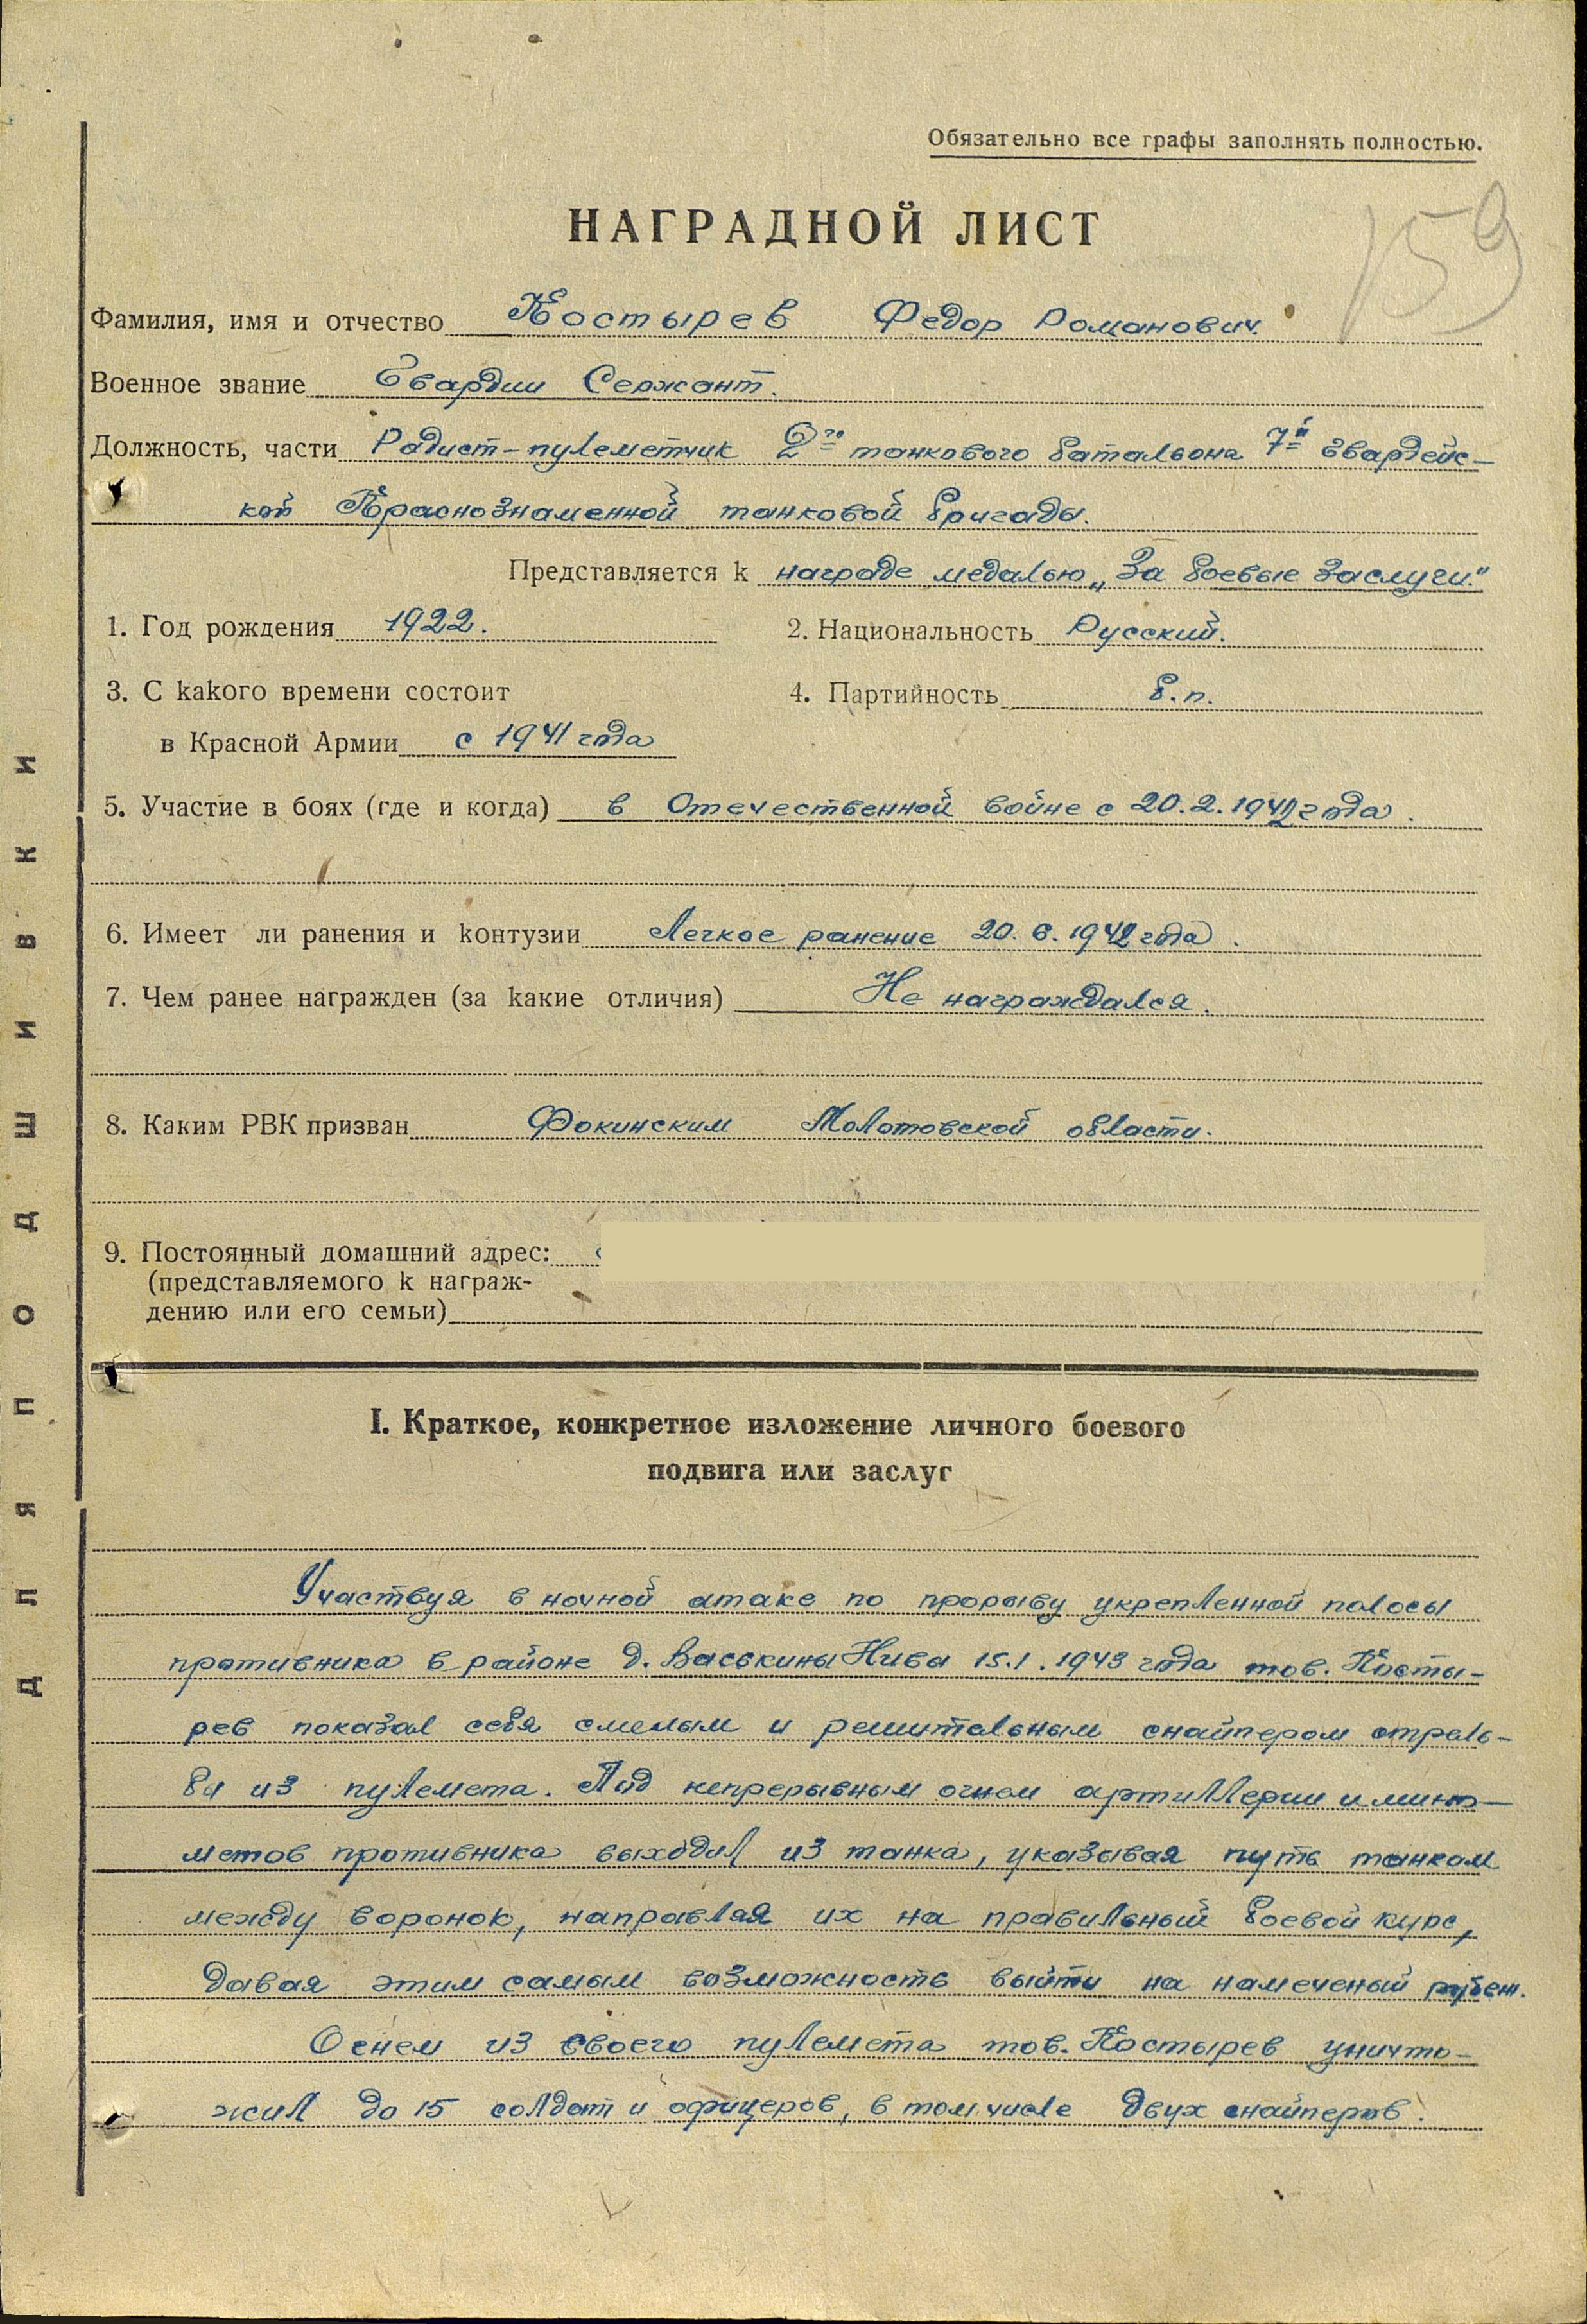 Обязательно все графы заполнять полностью.
НАГРАДНОЙ ЛИСТ
159
Фамилия, имя и отчество Костырев Федор Романович.
Военное звание Гвардии Сержант.
Должность, части Радист-пулеметчик 2го танкового батальона 7й Гвардейс-
кой Краснознаменной танковой бригады.
Представляется к награде медалью „За боевые заслуги."
1. Год рождения 1922. 2. Национальность Русский.
3. С какого времени состоит 4. Партийность б.п.
в Красной Армии с 1941 года
5. Участие в боях (где и когда) в Отечественной войне с 20.2.1942 года.
6. Имеет ли ранения и контузии Легкое ранение 20.6.1942 года.
7. Чем ранее награжден (за какие отличия) Не награждался.
8. Каким РВК призван Фокинским Молотовской области.
9. Постоянный домашний адрес:
(представляемого к награж-
дению или его семьи)
I. Краткое, конкретное изложение личного боевого
подвига или заслуг
Участвуя в ночной атаке по прорыву укрепленной полосы
противника в районе д. Васькины Нива 15.1.1943 года тов. Косты-
рев показал себя смелым и решительным снайпером стрель-
бы из пулемета. Под непрерывным огнем артиллерии и мино-
метов противника выходил из танка, указывая путь танкам
между воронок, направляя их на правильный боевой курс,
давая этим самым возможность выйти на намеченый рубеж.
Огнем из своего пулемета тов. Костырев уничто-
жил до 15 солдат и офицеров, в том числе двух снайперов.
ДЛЯ ПОДШИВКИ